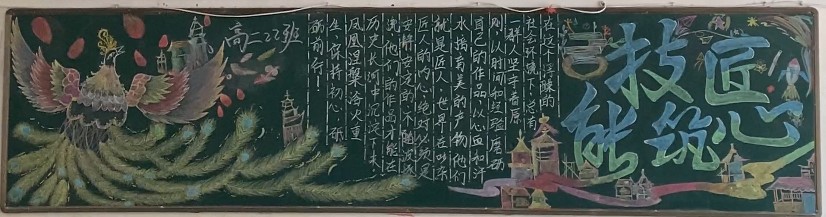 匠心
筑
技能
在这个浮躁的
社会环境下,总有
一群人坚守着原
则,以时间和经验磨砺
自己的作品,以心血和汗
水 美的产物他们
就是匠人,世界在吵杂
匠人的内心绝对必须是
安静安定的,不随波
他们的作品才能在
历史长河中沉淀下来,
凤凰涅槃浴火重
生,保持初心,砥
砺前行!
高二22班